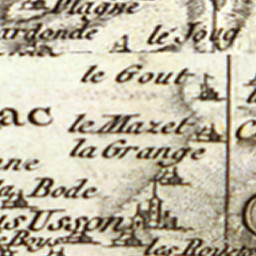 Plagne
ardonde le Joug
le Gout
ac le Mazet
la Grange
la Bode
Usson
Boys les Royets